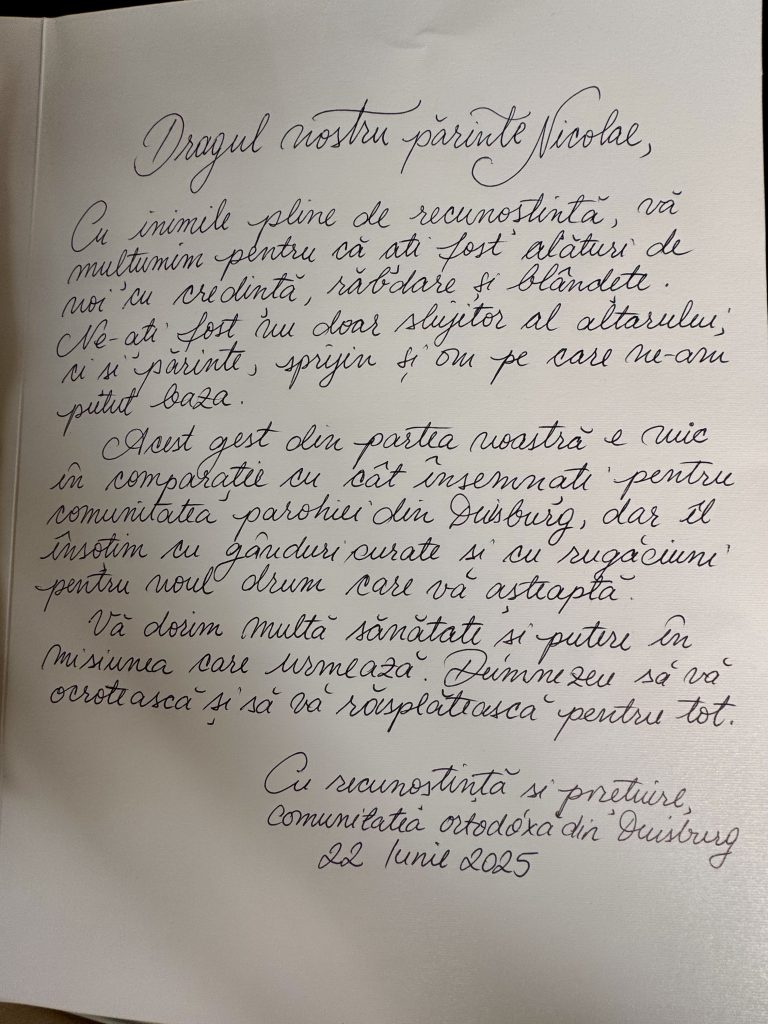 Dragul nostru părinte Nicolae,
Cu inimile pline de recunostintă, vă
multumim pentru că ati fost alături de
noi cu credintă, răbdare și blândețe.
Ne-ati fost nu doar slujitor al altarului,
ci si părinte, sprijin și om pe care ne-am
putut baza.
Acest gest din partea noastră e mic
în comparație cu cât însemnati pentru
comunitatea parohiei din Duisburg, dar îl
însotim cu gânduri curate si cu rugăciuni
pentru noul drum care vă așteaptă.
Vă dorim multă sănătate si putere în
misiunea care urmează. Dumnezeu să vă
ocrotească și să vă răsplătească pentru tot.
Cu recunostință si prețuire,
comunitatea ortodoxă din Duisburg
22 Iunie 2025